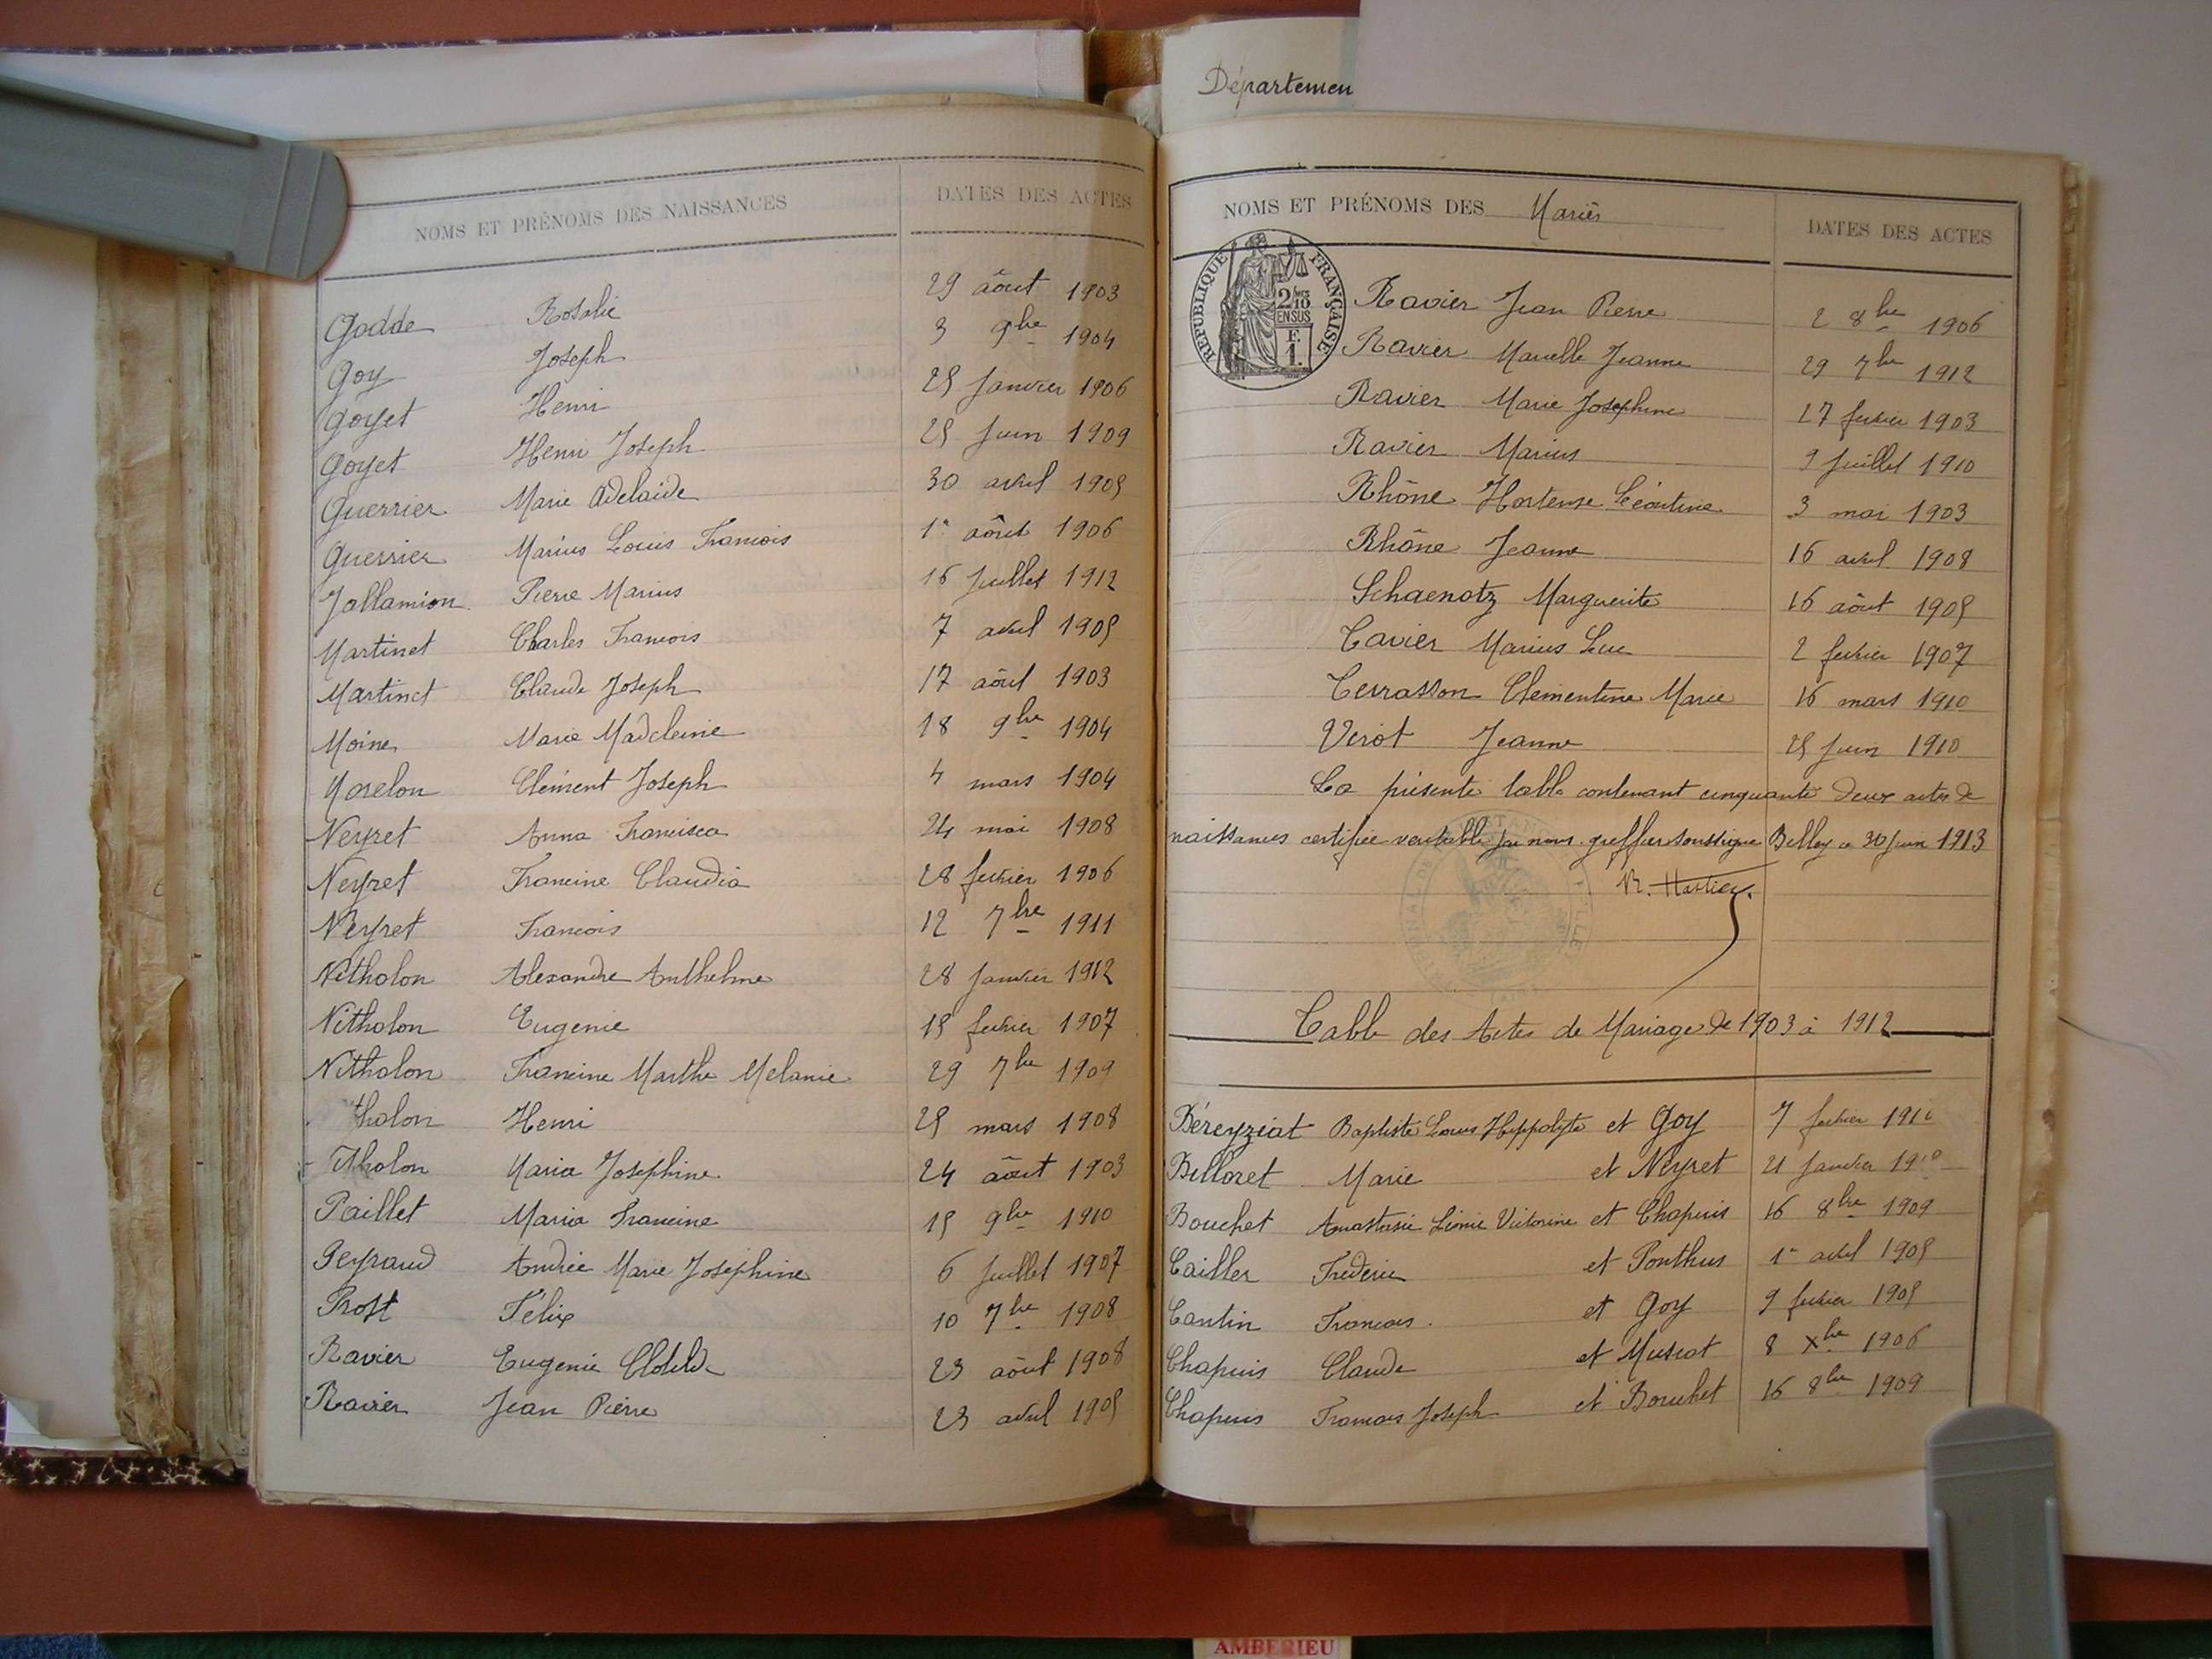 NOMS ET PRÉNOMS DES NAISSANCES DATES DES ACTES
Godde Rosalie 29 âout 1903
Goy Joseph 3 9bre 1904
Goyet Henri 25 Janvier 1906
Goyet Henri Joseph 25 Juin 1909
Guerrier Marie Adelaide 30 avril 1905
Guerrier Marius Louis Francois 1er aôut 1906
Jallamion Pierre Marius 16 Juillet 1912
Martinet Charles Francois 7 avril 1905
Martinet Claude Joseph 17 aôut 1903
Moine Marie Madeleine 18 9bre 1904
Morelon Clément Joseph 4 mars 1904
Neyret Anna Francisca 24 mai 1908
Neyret Francine Claudia 28 fevrier 1906
Neyret Francois 12 7bre 1911
Nitholon Alexandre Anthelme 28 Janvier 1912
Nitholon Eugenie 15 fevrier 1907
Nitholon Francine Marthe Melanie 29 7bre 1909
tholon Henri 25 mars 1908
tholon Maria Josephine 24 âout 1903
Paillet Maria Francine 15 9bre 1910
Peyraud Andrée Marie Josephine 6 Juillet 1907
Prost Félix 10 7bre 1908
Ravier Eugenie Clotilde 23 aôut 1908
Ravier Jean Pierre 23 avril 1905
Départemen
NOMS ET PRÉNOMS DES Mariés DATES DES ACTES
RÉPUBLIQUE FRANÇAISE
2/10
EN SUS
F.
1.
Ravier Jean Pierre 2 8bre 1906
Ravier Marcelle Jeanne 29 7bre 1912
Ravier Marie Josephine 17 fevrier 1903
Ravier Marius 9 Juillet 1910
Rhône Hortense Léontine 3 mai 1903
Rhône Jeanne 16 avril 1908
Schaenotz Marguerite 16 aôut 1905
Tavier Marius Luc 2 fevrier 1907
Terrasson Clementine Marie 16 mars 1910
Virot Jeanne 25 Juin 1910
La présente table contenant cinquante deux actes de
naissances certifiée veritable par nous greffier soussigné Belley ce 30 Juin 1913
Table des Actes de Mariage de 1903 à 1912
Béreyziat Baptiste Louis Hippolyte et Goy 7 fevrier
Billoret Marie et Neyret 21 Janvier 1910
Bouchet Anastasie Léonie Victorine et Chapuis 16 8bre 1909
Cailler Frederic et Ponthus 1er avril 1905
Cantin Francois et Goy 9 fevrier 1905
Chapuis Claude et Muscat 8 Xbre 1906
Chapuis Francois Joseph et Bouchet 16 8bre 1909
AMBERIEU